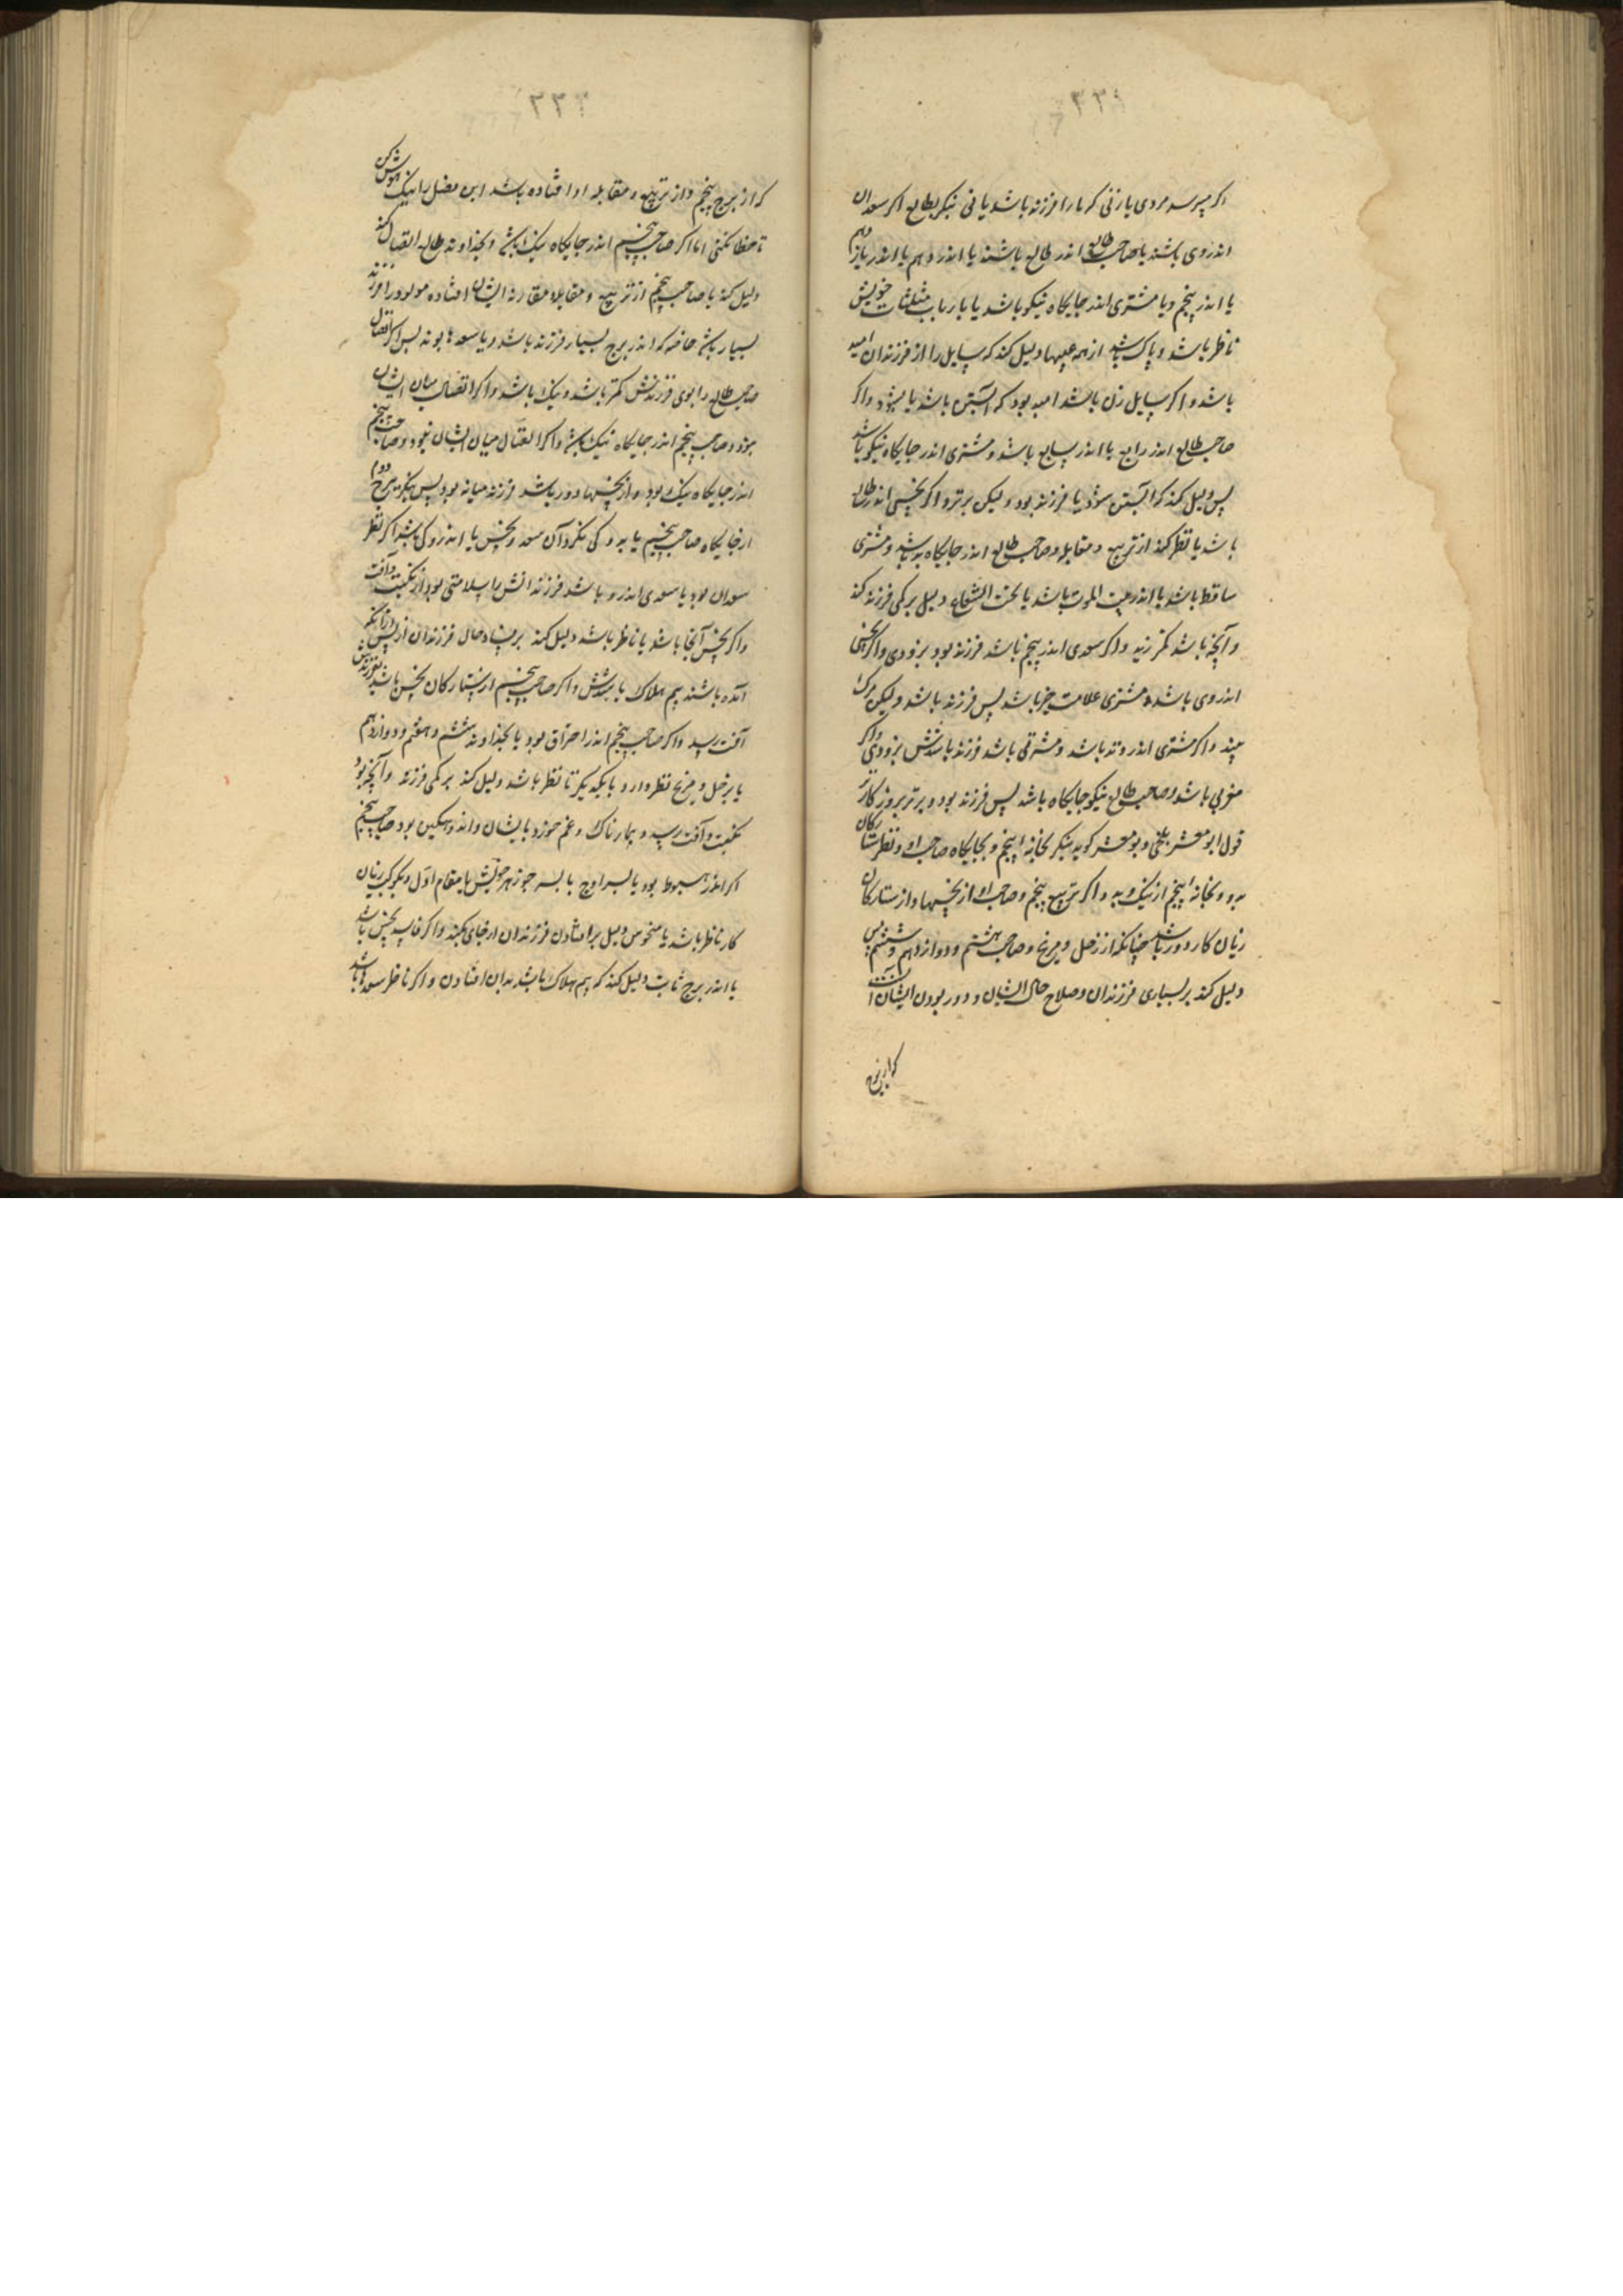 ٣٣٢
اگر پرسد مردی یا زنی که مارا فرزند باشد یا نی بنگر بطالع اگر سعدان
اندروی باشند یا صاحب طالع اندر طالع باشند یا اندر دهم یا اندر یازدهم
یا اندر پنجم و یا مشتری اندر جایگاه نیکو باشد یا با رباب مثلثات خویش
ناظر باشد و پاک باشد از همه عیبها دلیل کند که سایل را از فرزندان امید
باشد و اگر سایل زن باشد امید بود که آبستن باشد یا بشود و اگر
صاحب طالع اندر رابع یا اندر سابع باشد و مشتری اندر جایگاه نیکو باشد
پس دلیل کند که آبستن شود یا فرزند بود ولیکن برترو اگر نحسی اندر طالع
باشد یا نظر کند از تربیع و مقابله و صاحب طالع اندر جایگاه بد باشد و مشتری
ساقط باشد یا اندر بیت الموت باشد یا تحت الشعاع دلیل بر کمی فرزند کند
و آنچه باشد کمتر زید و اگر سعدی اندر پنجم باشد فرزند بود بزودی و اگر نحسی
اندروی باشد و مشتری علامت خیر باشد پس فرزند باشد ولیکن مرگ
بیند و اگر مشتری اندر وتد باشد و مشرقی باشد فرزند باشدش بزودی و اگر
مغربی باشد و صاحب طالع نیکو جایگاه باشد پس فرزند بود و برتر بروزگارتر
قول ابو معشر بلخی و بو معشر گوید بنگر بخانه پنجم و بجایگاه صاحب او و نظر ستارگان
بدو و بخانه پنجم از نیک و بد و اگر تربیع پنجم و صاحب او از نحسها و از ستارگان
زیان کار دور باشد چنانکه از زحل و مریخ و صاحب هشتم و دوازدهم و ششم پس
دلیل کند بر بسیاری فرزندان و صلاح حال ایشان و دور بودن ایشان از آفت
که از برج
٣٣٣
که از برج پنجم و از تربیع و مقابله او افتاده باشد این فصل را نیک گوش کن
تا خطا نکنی اما اگر صاحب پنجم اندر جایگاه نیک باشد و بخداوند طالع اتصال کند
دلیل کند یا صاحب پنجم از تربیع و مقابله و مقارنه ایشان افتاده مولود را فرزند
بسیار باشد خاصه که اندر برج بسیار فرزند باشد و یا سعدها بوند پس اگر اتصال
صاحب طالع را بوی فرزندش کمتر باشد و نیک باشد و اگر اتصال میان ایشان
بود و صاحب پنجم اندر جایگاه نیک باشد و اگر اتصال میان ایشان نبود و صاحب پنجم
اندر جایگاه نیک بود و از نحسها دور باشد فرزند میانه بود پس بنگر ببرج دوم
از جایگاه صاحب پنجم یا بدو کی نگرد آن سعد و نحس یا اندرو کی باشد اگر نظر
سعدان بود یا سعدی اندرو باشد فرزندانش را سلامتی بود از نکبت و آفت
و اگر نحس آنجا باشد یا ناظر باشد دلیل کند بر فساد حال فرزندان از پس زانکه
آمده باشند بیم هلاک باشدش و اگر صاحب پنجم از ستارگان نحس باشد بفرزندش
آفت رسد و اگر صاحب پنجم اندر احتراق بود یا بخداوند ششم و هفتم و دوازدهم
یا بزحل و مریخ نظر دارد و با یکدیگر تا نظر باشد دلیل کند بر کمی فرزند و آنچه بود
نکبت و آفت رسد و بیمارناک و غم خورد بایشان و اندوهگین بود صاحب پنجم
اگر اندر هبوط بود یا بسر اوج یا بسر جوزهر خویش یا مقام اول و بکوکب زیان
کار ناظر باشد یا منحوس دلیل بر افتادن فرزندان از جای بکند و اگر فاسد نحس باشد
یا اندر برج ثابت دلیل کند که بیم هلاک باشد بدان افتادن و اگر ناظر سعدها باشد